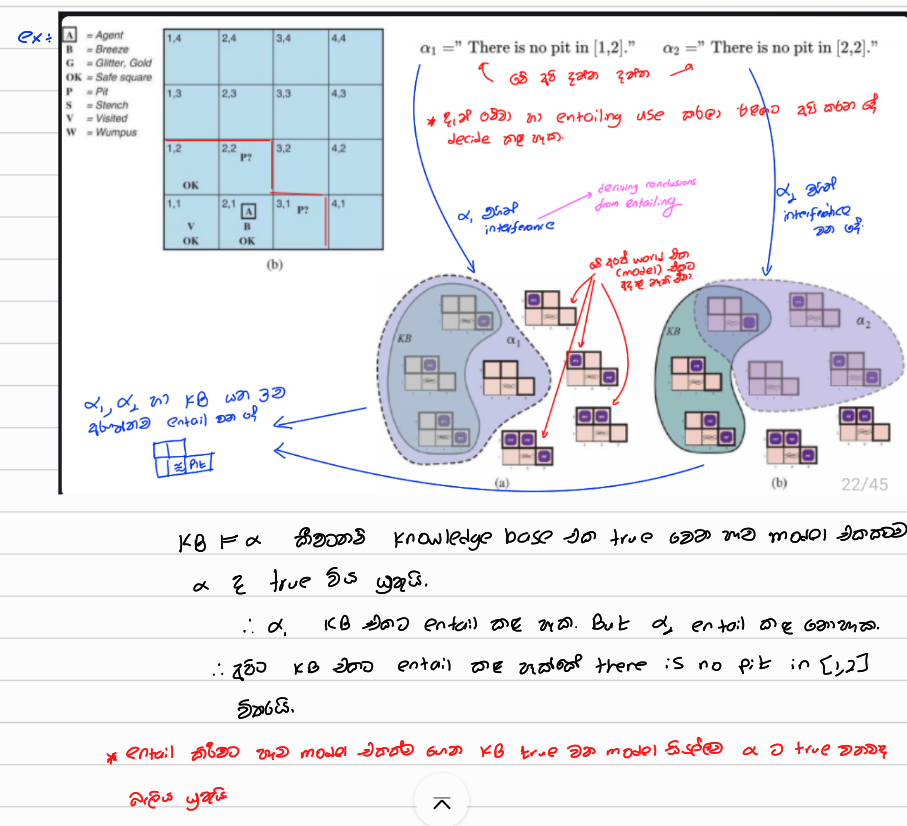 ex:
A = Agent
B = Breeze
G = Glitter, Gold
OK = Safe square
P = Pit
S = Stench
V = Visited
W = Wumpus
1,4 2,4 3,4 4,4
1,3 2,3 3,3 4,3
1,2 2,2 P? 3,2 4,2
OK
1,1 2,1 A 3,1 P? 4,1
V B
OK OK
(b)
α1 =" There is no pit in [1,2]." α2 =" There is no pit in [2,2]."
මේ අපි දන්න දන්න
* දැන් මේවා හා entailing use කරලා අපි කරන දේ
decide කළ හැක.
α1 වලින්
interference
deriving conclusions
from entailing
α2 වලින්
interference
වන දේ.
මේ අපේ world එක
(model) එකට
KB
α1
KB
α2
(a)
(b)
22/45
α1, α2 හා KB යන 3ම
entail වන දේ
Pit
KB ⊨ α කීවාම knowledge base එක true වෙන හැම model එකකම
α ද true විය යුතුයි.
∴ α1 KB එකට entail කළ හැක. But α2 entail කළ නොහැක.
∴ අපිට KB එකට entail කළ හැක්කේ there is no pit in [1,2]
විතරයි.
* entail කිරීමට හැම model එකක්ම ගෙන KB true වන model සියල්ලම α ට true වනවද
බැලිය යුතුයි